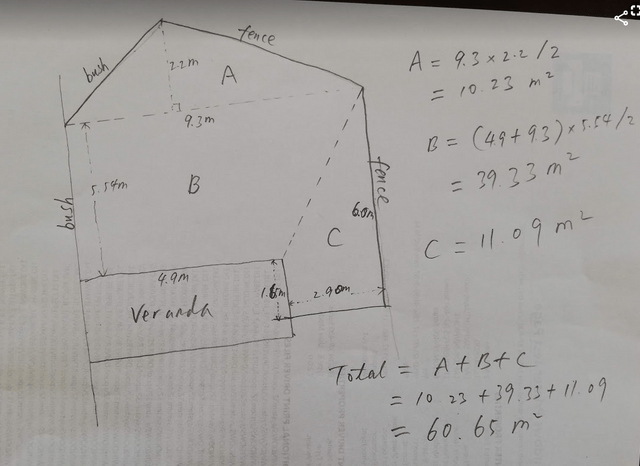 fence
bush
2.2m
A
9.3m
5.54m
B
bush
fence
6.0m
C
4.9m
1.6m
2.90m
Veranda
A = 9.3 x 2.2 / 2
= 10.23 m²
B = (4.9 + 9.3) x 5.54 / 2
= 39.33 m²
C = 11.09 m²
Total = A + B + C
= 10.23 + 39.33 + 11.09
= 60.65 m²